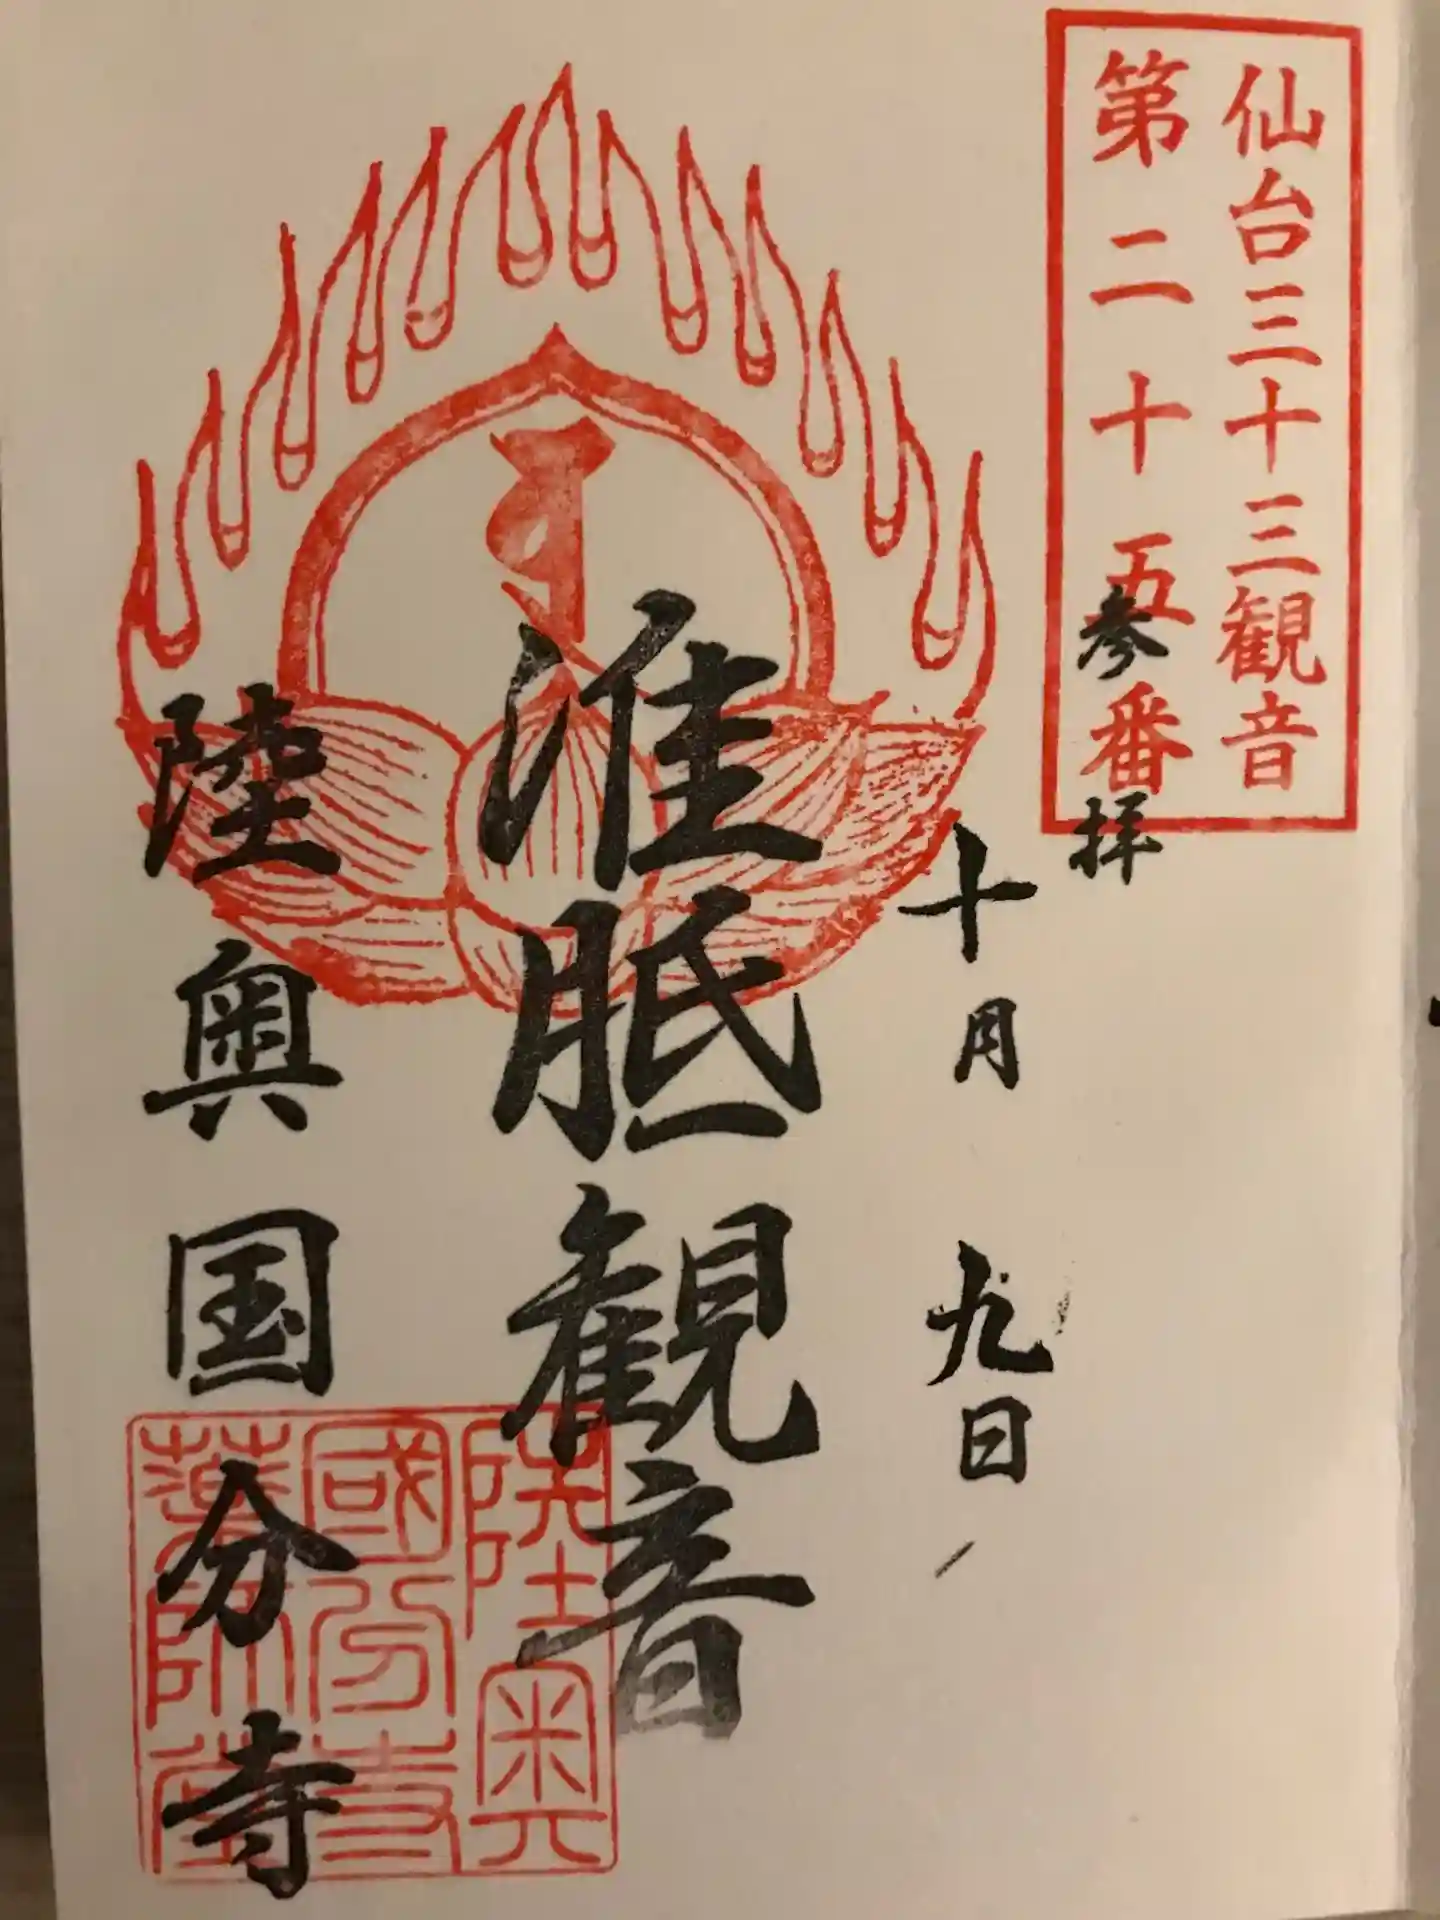 仙台三十三観音
第二十五番
参拝
十月九日
准胝観音
陸奥国分寺
陸奥
國分寺
薬師堂